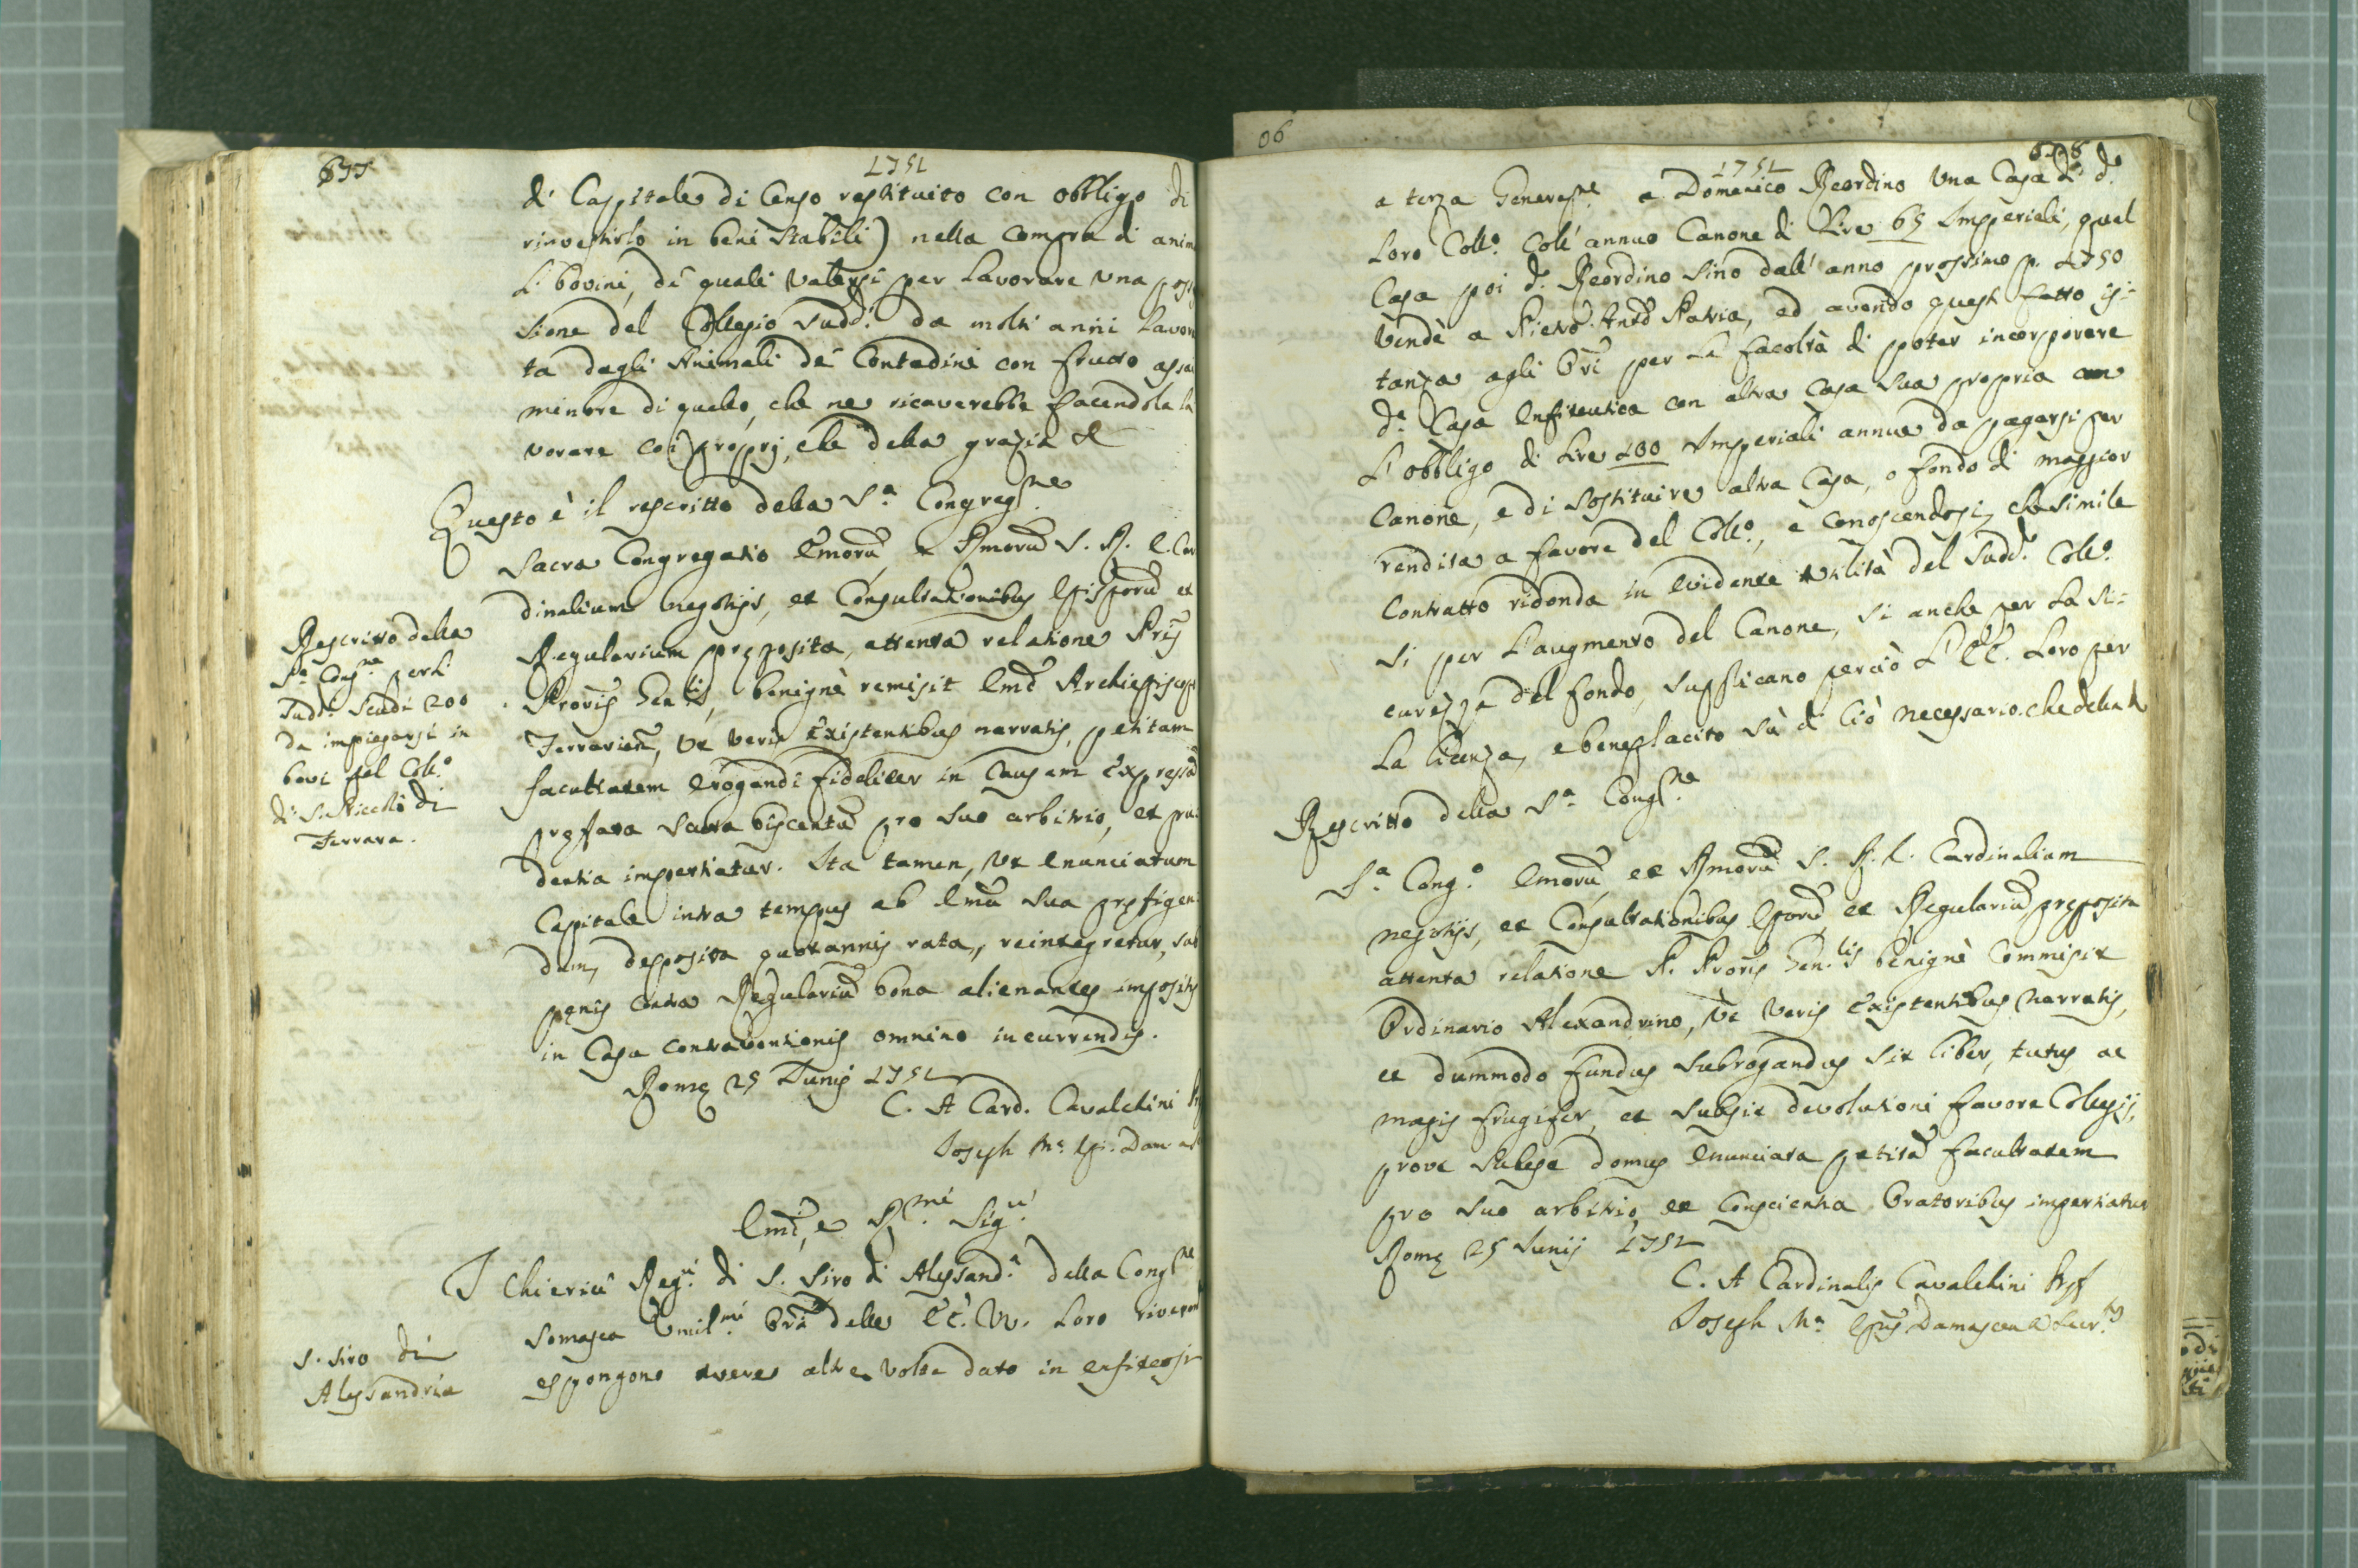 677
1751
di Capitale di Censo restituito con obbligo di
rinvestirlo in beni stabili) nella compra di anima
li bovini, de quali valersi per lavorare una posse
sione del Collegio sudd.º da molti anni lavora
ta dagli Animali de Contadini con frutto assai
minore di quello, che ne ricaverebbe facendola la
vorare coi proprj, che della grazia &
Questo è il rescritto della S.ª Congreg.ne
Sacra Congregatio Emorũ, et Rmorũ S. R. E. Car
dinalium negotijs, et Consultationibus Episporũ et
Regularium pręposita, attenta relatione Pris
Proris Gen.lis, benignè remisit Emõ Archiepiscopo
Ferrarien, ut veris existentibus narratis, petitam
facultatem erogandi fideliter in causam expressã
pręfata scuta biscentũ pro suo arbitrio, et pru
dentia impertiatur. Ita tamen, ut enunciatum
Capitale intra tempus ab Emã sua pręfigen
dum, deposita quotannis rata, reintegretur, sub
pęnis contra Regulariũ bona alienantes impositis
in Casu contraventionis omnino incurrendis.
Romę 25 Junij 1751
C. A Card. Cavalchini
Joseph M.ª
Rescritto della
S.ª Cong.ne per li
sudd.i scudi 200
da impiegarsi in
bovi pel Coll.º
di S. Niccolò di
Ferrara.
Emĩ, e R.mi Sig.ri
I Chierici Reg.ri di S. Siro di Alessand.ª della Cong.ne
Somasca Umil.mi Ori delle EE. VV. Loro riverent
espongono avere altre volte dato in enfiteosi
S. Siro di
Alessandria
06
678
1751
a terza Generaz.ne a Domenico Reordino una Casa di d.º
Loro Coll.º coll'annuo Canone di Lire 65 Imperiali, qual
Casa poi d.º Reordino sino dall'anno prossimo p. 1750
vendè a Pietro Ant.º Patria, ed avendo questi fatto is=
tanza agli Ori per la facoltà di poter incorporare
d.ª Casa Enfiteutica con altra Casa sua propria con
l'obbligo di Lire 100 Imperiali annue da pagarsi per
Canone, e di sostituire altra Casa, o fondo di maggior
rendita a favore del Coll.º, e conoscendosi, che simile
Contratto ridonda in evidente utilità del sudd.º Coll.º
si per l'augmento del Canone, si anche per la si=
curezza del fondo, supplicano perciò l'EE. Loro per
la licenza, e beneplacito sù di ciò necessario. che della &
Rescritto della S.ª Cong.ne
S.ª Cong.º Emorũ, et Rmorũ S. R. E. Cardinalium
negotijs, et Consultationibus Eporũ, et Regulariũ pręposita
attenta relatione P. Proris Gen.lis benignè commisit
Ordinario Alexandrino, ut veris existentibus narratis,
et dummodo fundus subrogandus sit liber, tutus ac
magis frugifer, et subsit devolutioni favore Collegij,
prout subest domus enunciata petitã facultatem
pro suo arbitrio, et conscientia Oratoribus impertiatur
Romę 25 Junij 1751
C. A Cardinalis Cavalchini Pręf
Joseph M.ª Epus Damascen Secr.rius